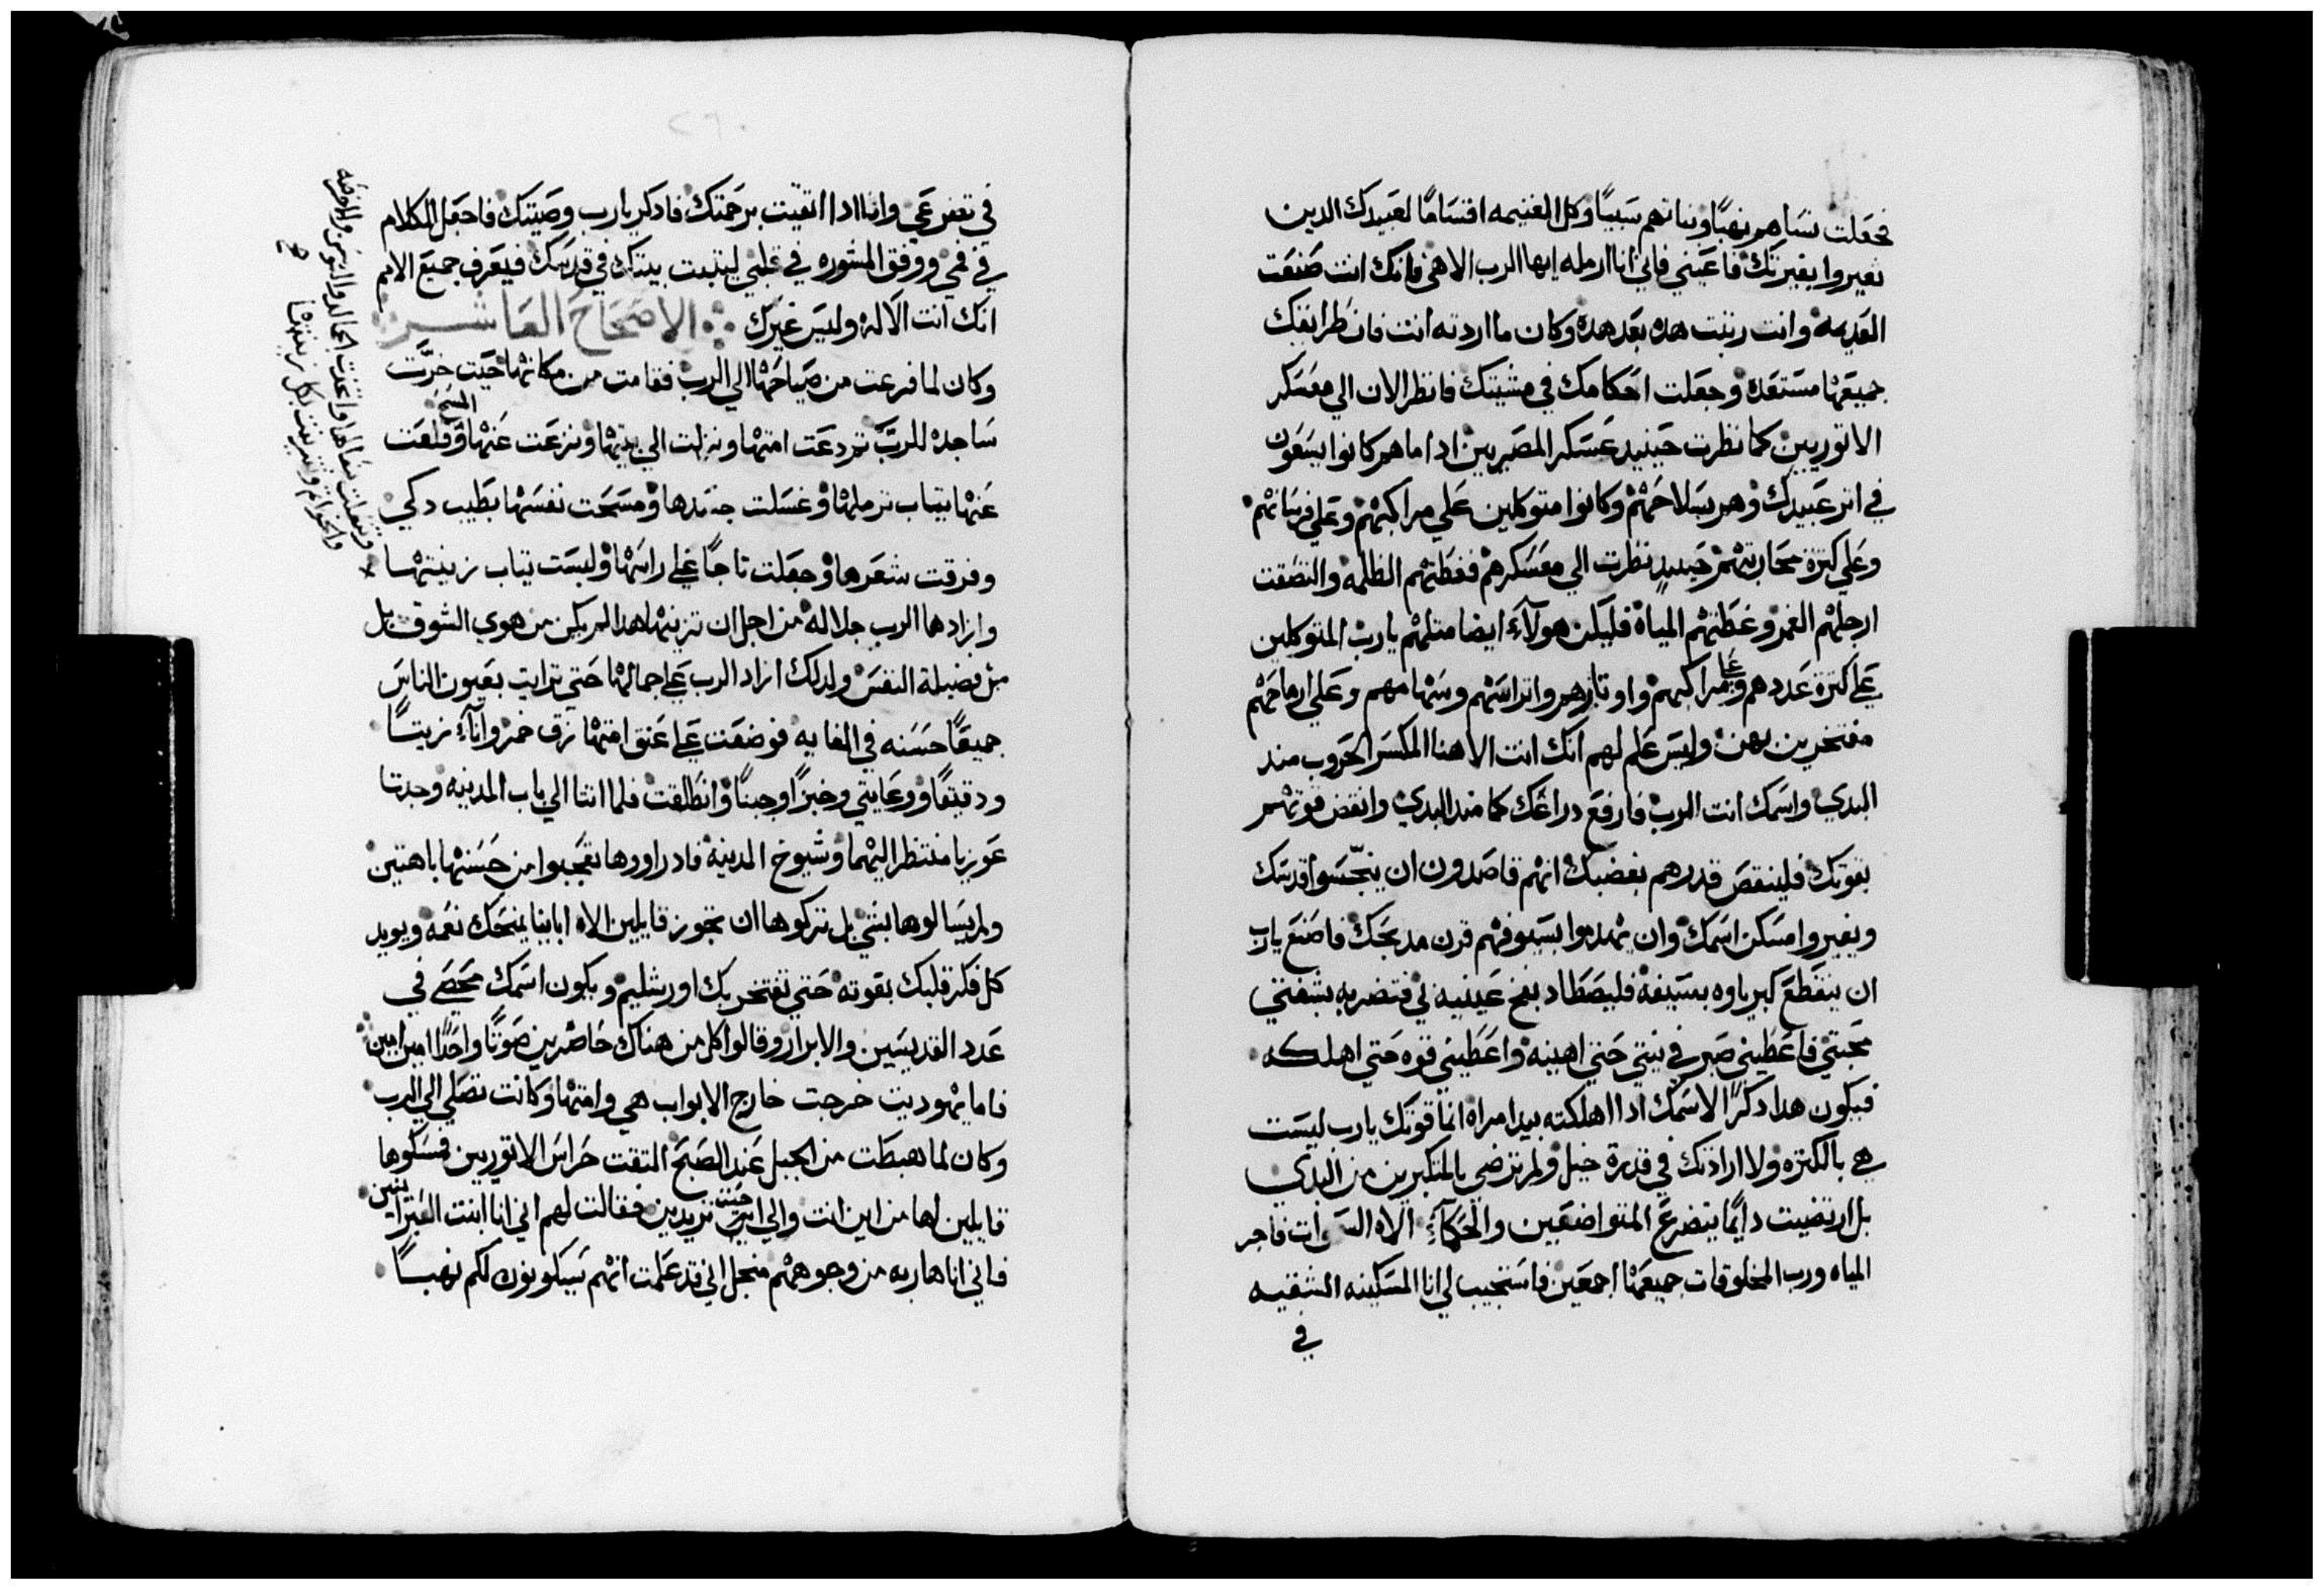 فجعلت نساهم نهبًا وبناتهم سبيًا وكل الغنيمه اقسامًا لعبيدك الدين
تغيروا بغيرتك فاعيني فاني انا ارمله ايها الرب الاهي فانك انت صنعت
القديمه وانت رتبت هده بعد هده وكان ما اردته انت فان طرايقك
جميعها مستعده وجعلت احكامك في مشيتك فانظر الان الي معسكر
الاتوريين كما نظرت حينيد عسكر المصريين ادا ما هم كانوا يسعون
في اتر عبيدك وهم بسلاحهم وكانوا متوكلين علي مراكبهم وعلي فرسانهم
وعلي كترة محاربيهم حينيد نظرت الي معسكرهم فغطتهم الظلمه والتصقت
ارجلهم الغمر وغطتهم المياه فليكن هولآء ايضا متلهم يا رب المتوكلين
علي كترة عددهم وعلي مراكبهم واوتارهم واتراسهم وسهامهم وعلي ارماحهم
مفتخرين بهن وليس علم لهم انك انت الاهنا المكسر الحروب مند
البدي واسمك انت الرب فارفع دراعك كما مند البدي وانقض قوتهم
بقوتك فلينقص قدرهم بغضبك انهم قاصدون ان ينجّسوا قدسك
ويغيروا مسكن اسمك وان يهدموا بسيوفهم قرن مدبحك فاصنع يارب
ان ينقطع كبرياوه بسيفه فليصطاد بفخ عينيه في فتضربه بشفتي
محبتي فاعطيني صبر في نيتي حتي اهينه واعطيني قوه حتي اهلكه
فيكون هدا دكرًا لاسمك ادا اهلكته بيد امراه انما قوتك يارب ليست
هي بالكتره ولا ارادتك في قدرة خيل ولم ترضي بالمتكبرين من البدي
بل ارتضيت دايمًا بتضرع المتواضعين والحكمآء الاه السموات فاجر
المياه ورب المخلوقات جميعها اجمعين فاستجيب لي انا المسكينه الشقيه
في
في تضرعي وانا ادا اتقيت برحمتك فادكر يارب وصيتك فاجعل الكلام
في فمي ووفق المشوره في قلبي ليتبت بيتك في قدسك فيعرف جميع الامم
انك انت الاله وليس غيرك الاصحاح العاشر
وكان لما فرغت من صياحها الي الرب فقامت من مكانها حيت خرّت
ساجده للربّ تم دعت امتها ونزلت الي بيتها ونزعت عنها المسح وقلعت
عنها تياب ترملها وغسلت جسدها ومسحت نفسها بطيب دكي
وفرقت شعرها وجعلت تاجًا علي راسها ولبست تياب زينتها
وتنعلت نعالها واتخدت الحمالد والسوسن والاقرطه
والخواتم وتزينت بكل زينتها
وازادها الرب جلاله من اجل ان تزينها هدا لم يكن من هوي الشوق بل
من فضيلة النفس ولدلك ازاد الرب علي جمالها حتي ترايت بعيون الناس
جميعًا حسنه في الغايه فوضعت علي عنق امتها زق خمر وانآء زيتًا
ودقيقًا ورعايتي وخبزًا وجبنًا وانطلقت فلما اتتا الي باب المدينه وجدتا
عوزيا منتظر اليهما وشيوخ المدينه فادا راوها تعجبوا من حسنها باهتين
ولم يسالوها بشي بل تركوها ان تجوز قايلين الاه اباينا يمنحك نعمه ويويد
كل فكر قلبك بقوته حتي تفتخر بك اورشليم ويكون اسمك محصي في
عدد القديسين والابرار وقالوا كل من هناك حاضرين صوتًا واحدًا امين امين
فاما يهوديت خرجت خارج الابواب هي وامتها وكانت تصلي الي الرب
وكان لما هبطت من الجبل عند الصبح التقت حراس الاتوريين فمسكوها
قايلين لها من اين انت والي اين تريدين فقالت لهم اني انا ابنت العبرانيين
فاني انا هاربه من وجوههم منجل اني قد علمت انهم سيكونون لكم نهبًا